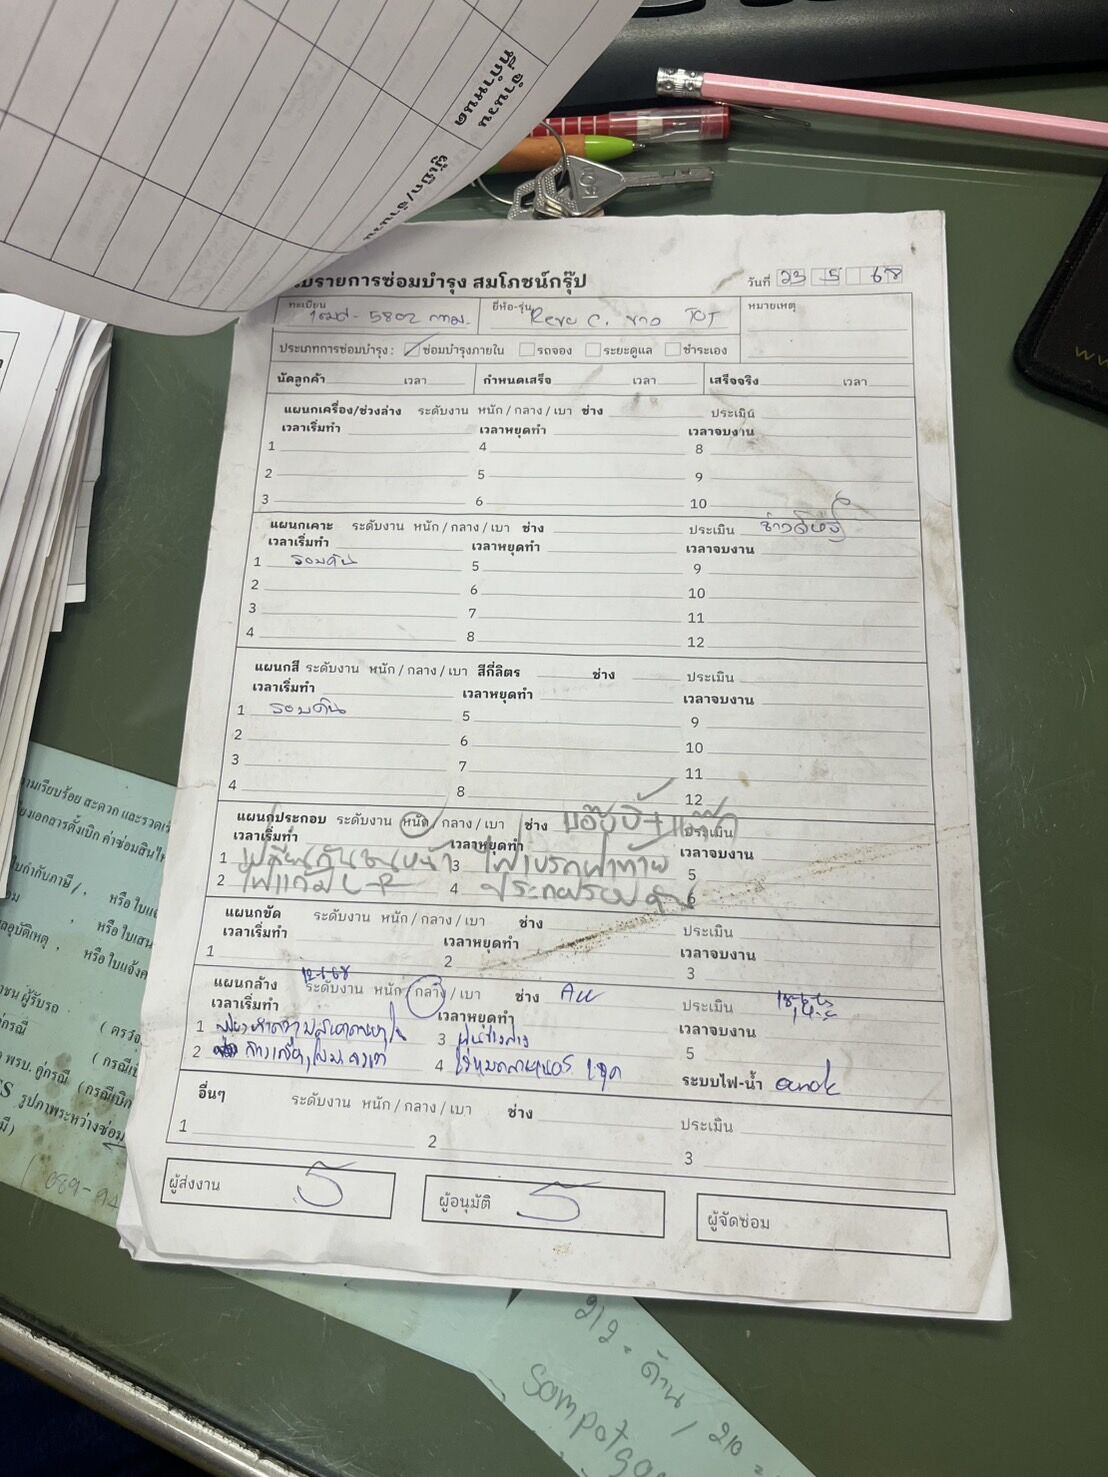 จำนวน
ที่กำหนด
ผู้เบิก/จำนวน
บรายการซ่อมบำรุง สมโภชน์กรุ๊ป
วันที่ 23 5 68
ทะเบียน 5802 กทม.
ยี่ห้อ-รุ่น Revo C. ขาว TOT
หมายเหตุ
ประเภทการซ่อมบำรุง: ซ่อมบำรุงภายใน รถจอง ระยะดูแล ชำระเอง
นัดลูกค้า เวลา กำหนดเสร็จ เวลา เสร็จจริง เวลา
แผนกเครื่อง/ช่วงล่าง ระดับงาน หนัก / กลาง / เบา ช่าง ประเมิน
เวลาเริ่มทำ เวลาหยุดทำ เวลาจบงาน
1 4 8
2 5 9
3 6 10
แผนกเคาะ ระดับงาน หนัก / กลาง / เบา ช่าง ประเมิน
เวลาเริ่มทำ เวลาหยุดทำ เวลาจบงาน
1 รอบคัน 5 9
2 6 10
3 7 11
4 8 12
แผนกสี ระดับงาน หนัก / กลาง / เบา สีกี่ลิตร ช่าง ประเมิน
เวลาเริ่มทำ เวลาหยุดทำ เวลาจบงาน
1 รอบคัน 5 9
2 6 10
3 7 11
4 8 12
แผนกประกอบ ระดับงาน หนัก / กลาง / เบา ช่าง ประเมิน
เวลาเริ่มทำ เวลาหยุดทำ เวลาจบงาน
1 เปลี่ยนกันชนหน้า 3 ไฟเบรคฝาท้าย 5
2 ไฟแก้ม L-R 4 ประกอบรอบคัน 6
แผนกขัด ระดับงาน หนัก / กลาง / เบา ช่าง ประเมิน
เวลาเริ่มทำ เวลาหยุดทำ เวลาจบงาน
1 2 3
แผนกล้าง ระดับงาน หนัก / กลาง / เบา ช่าง ประเมิน
เวลาเริ่มทำ เวลาหยุดทำ เวลาจบงาน
1 3 5
2 4 ระบบไฟ-น้ำ
อื่นๆ ระดับงาน หนัก / กลาง / เบา ช่าง ประเมิน
1 2 3
ผู้ส่งงาน
ผู้อนุมัติ
ผู้จัดซ่อม
ามเรียบร้อย สะดวก และรวดเร็
ยงเอกสารตั้งเบิก ค่าซ่อมสินไห
บกำกับภาษี/, หรือ ใบแ
หรือ ใบเสน
ลอุบัติเหตุ, หรือ ใบแจ้งค
ผู้รับรถ ( ตรวจ
ู่กรณี ( กรณีเป็
พรบ. คู่กรณี (กรณีเบิก
รูปภาพระหว่างซ่อม
089-94
212 - ด้าน / 210